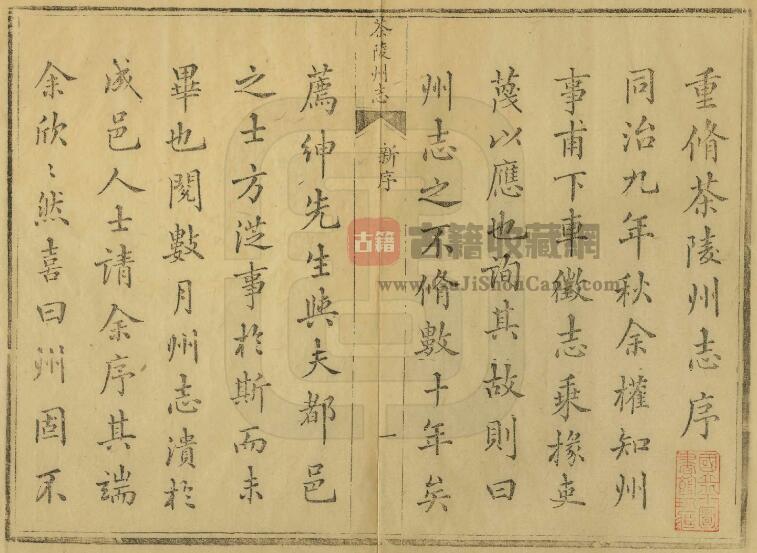 重脩茶陵州志序
同治九年秋余權知州
事甫下車徵志乘掾吏
蔑以應也詢其故則曰
州志之不脩數十年矣
茶陵州志
新序
一
薦紳先生與夫都邑
之士方從事於斯而未
畢也閱數月州志潰於
成邑人士請余序其端
余欣〻然喜曰州固不
古籍 古籍收藏網
www.GuJiShouCang.com